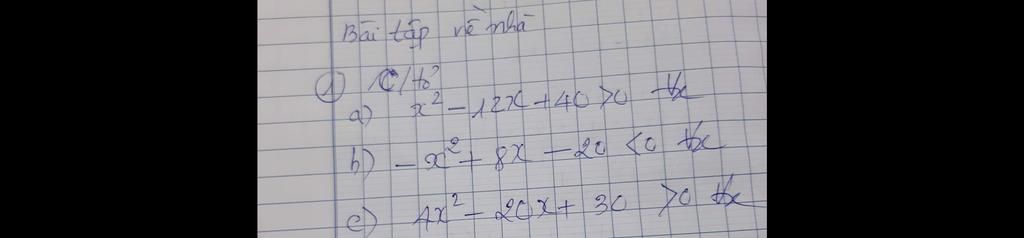 Bài tập về nhà
① C/tỏ
a) x² - 12x + 40 > 0 ∀x
b) - x² + 8x - 20 < 0 ∀x
c) 4x² - 20x + 30 > 0 ∀x